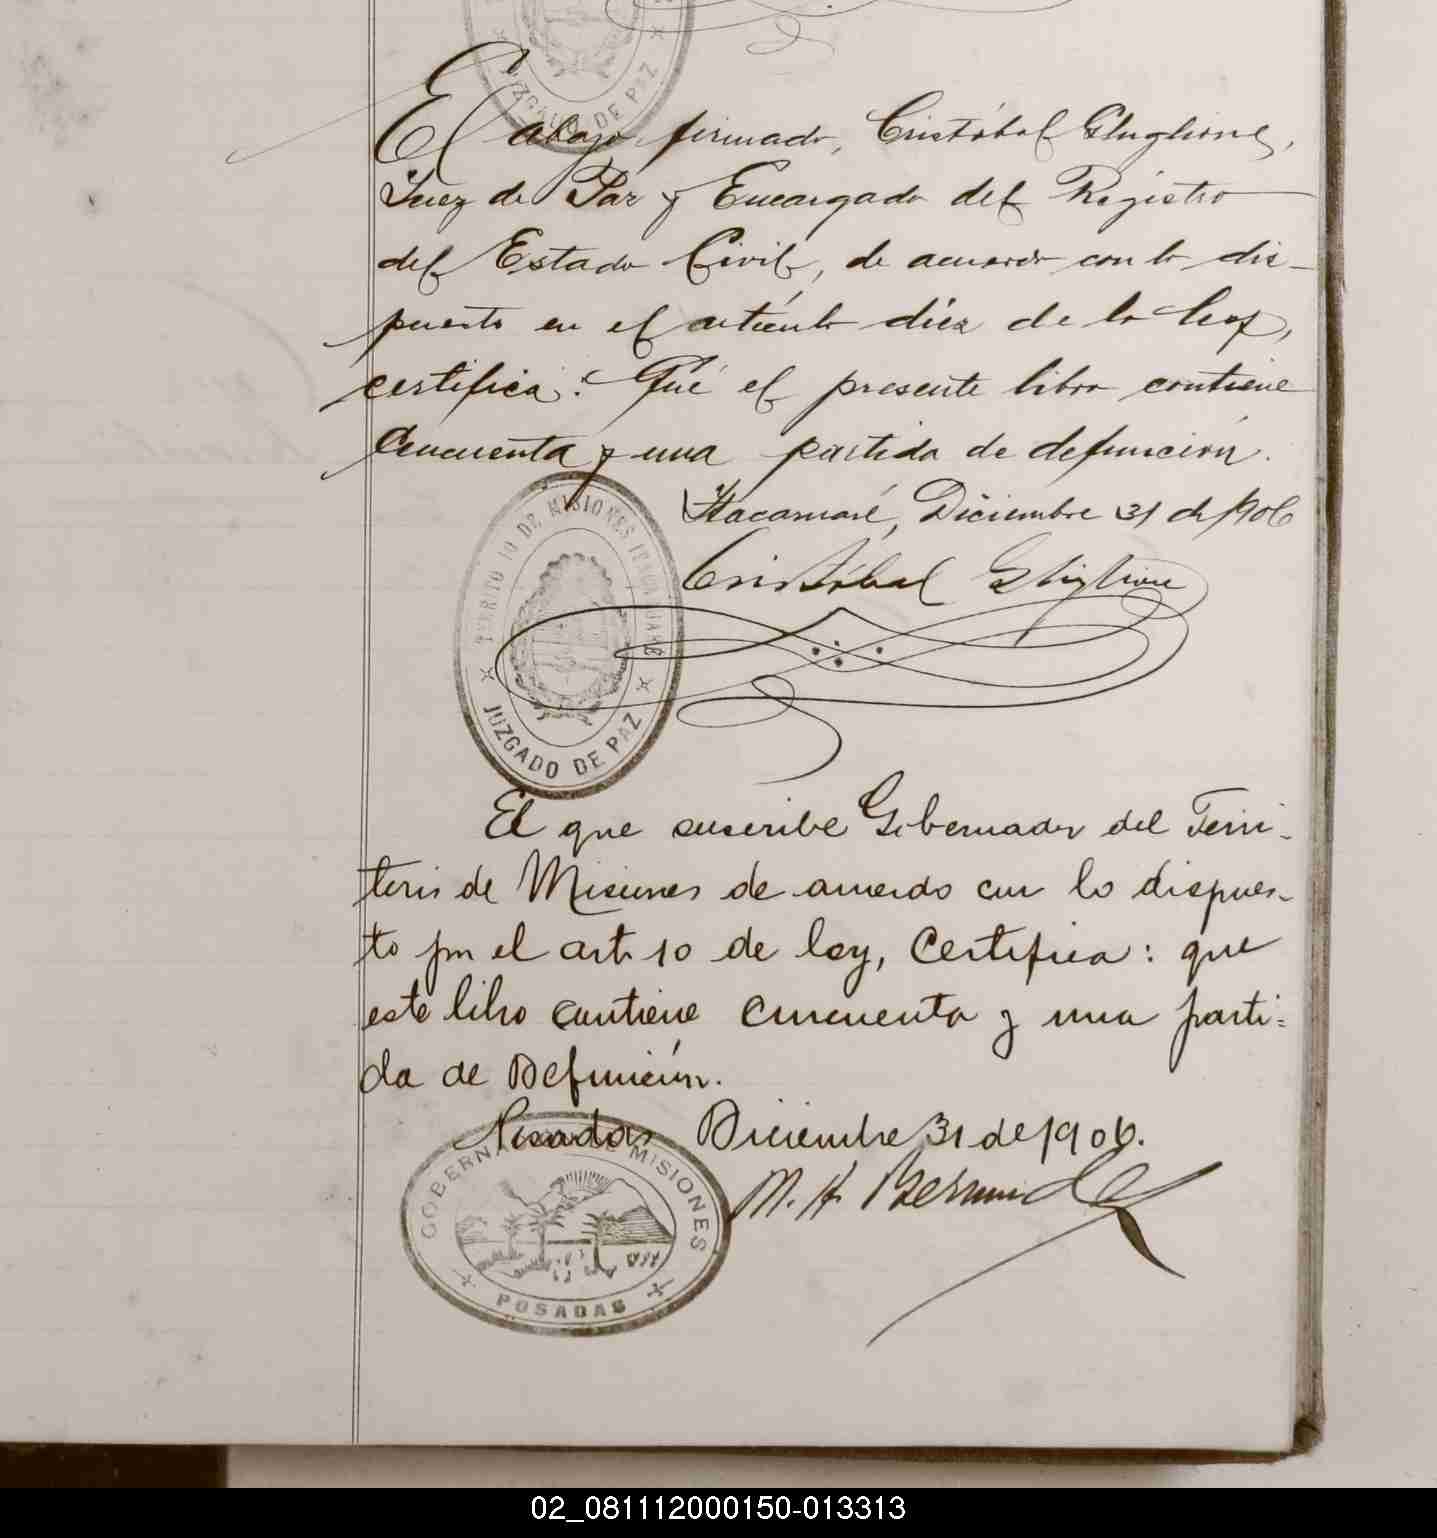 JUZGADO DE PAZ
El abajo firmado, Cristóbal Ghiglione,
Juez de Paz y Encargado del Registro
del Estado Civil, de acuerdo con lo dis-
puesto en el artículo diez de la ley,
certifica: Qué el presente libro contiene
Cincuenta y una partida de defunción.
Itacaruaré, Diciembre 31 de 1906
Cristóbal Ghiglione
TERRITORIO DE MISIONES ITACARUARÉ
JUZGADO DE PAZ
El que suscribe Gobernador del Terri-
torio de Misiones de acuerdo con lo dispues-
to por el art. 10 de ley, Certifica: que
este libro contiene cincuenta y una parti=
da de Defunción.
Posadas Diciembre 31 de 1906.
M. H. Bermudez
GOBERNACION DE MISIONES
POSADAS
02_081112000150-013313